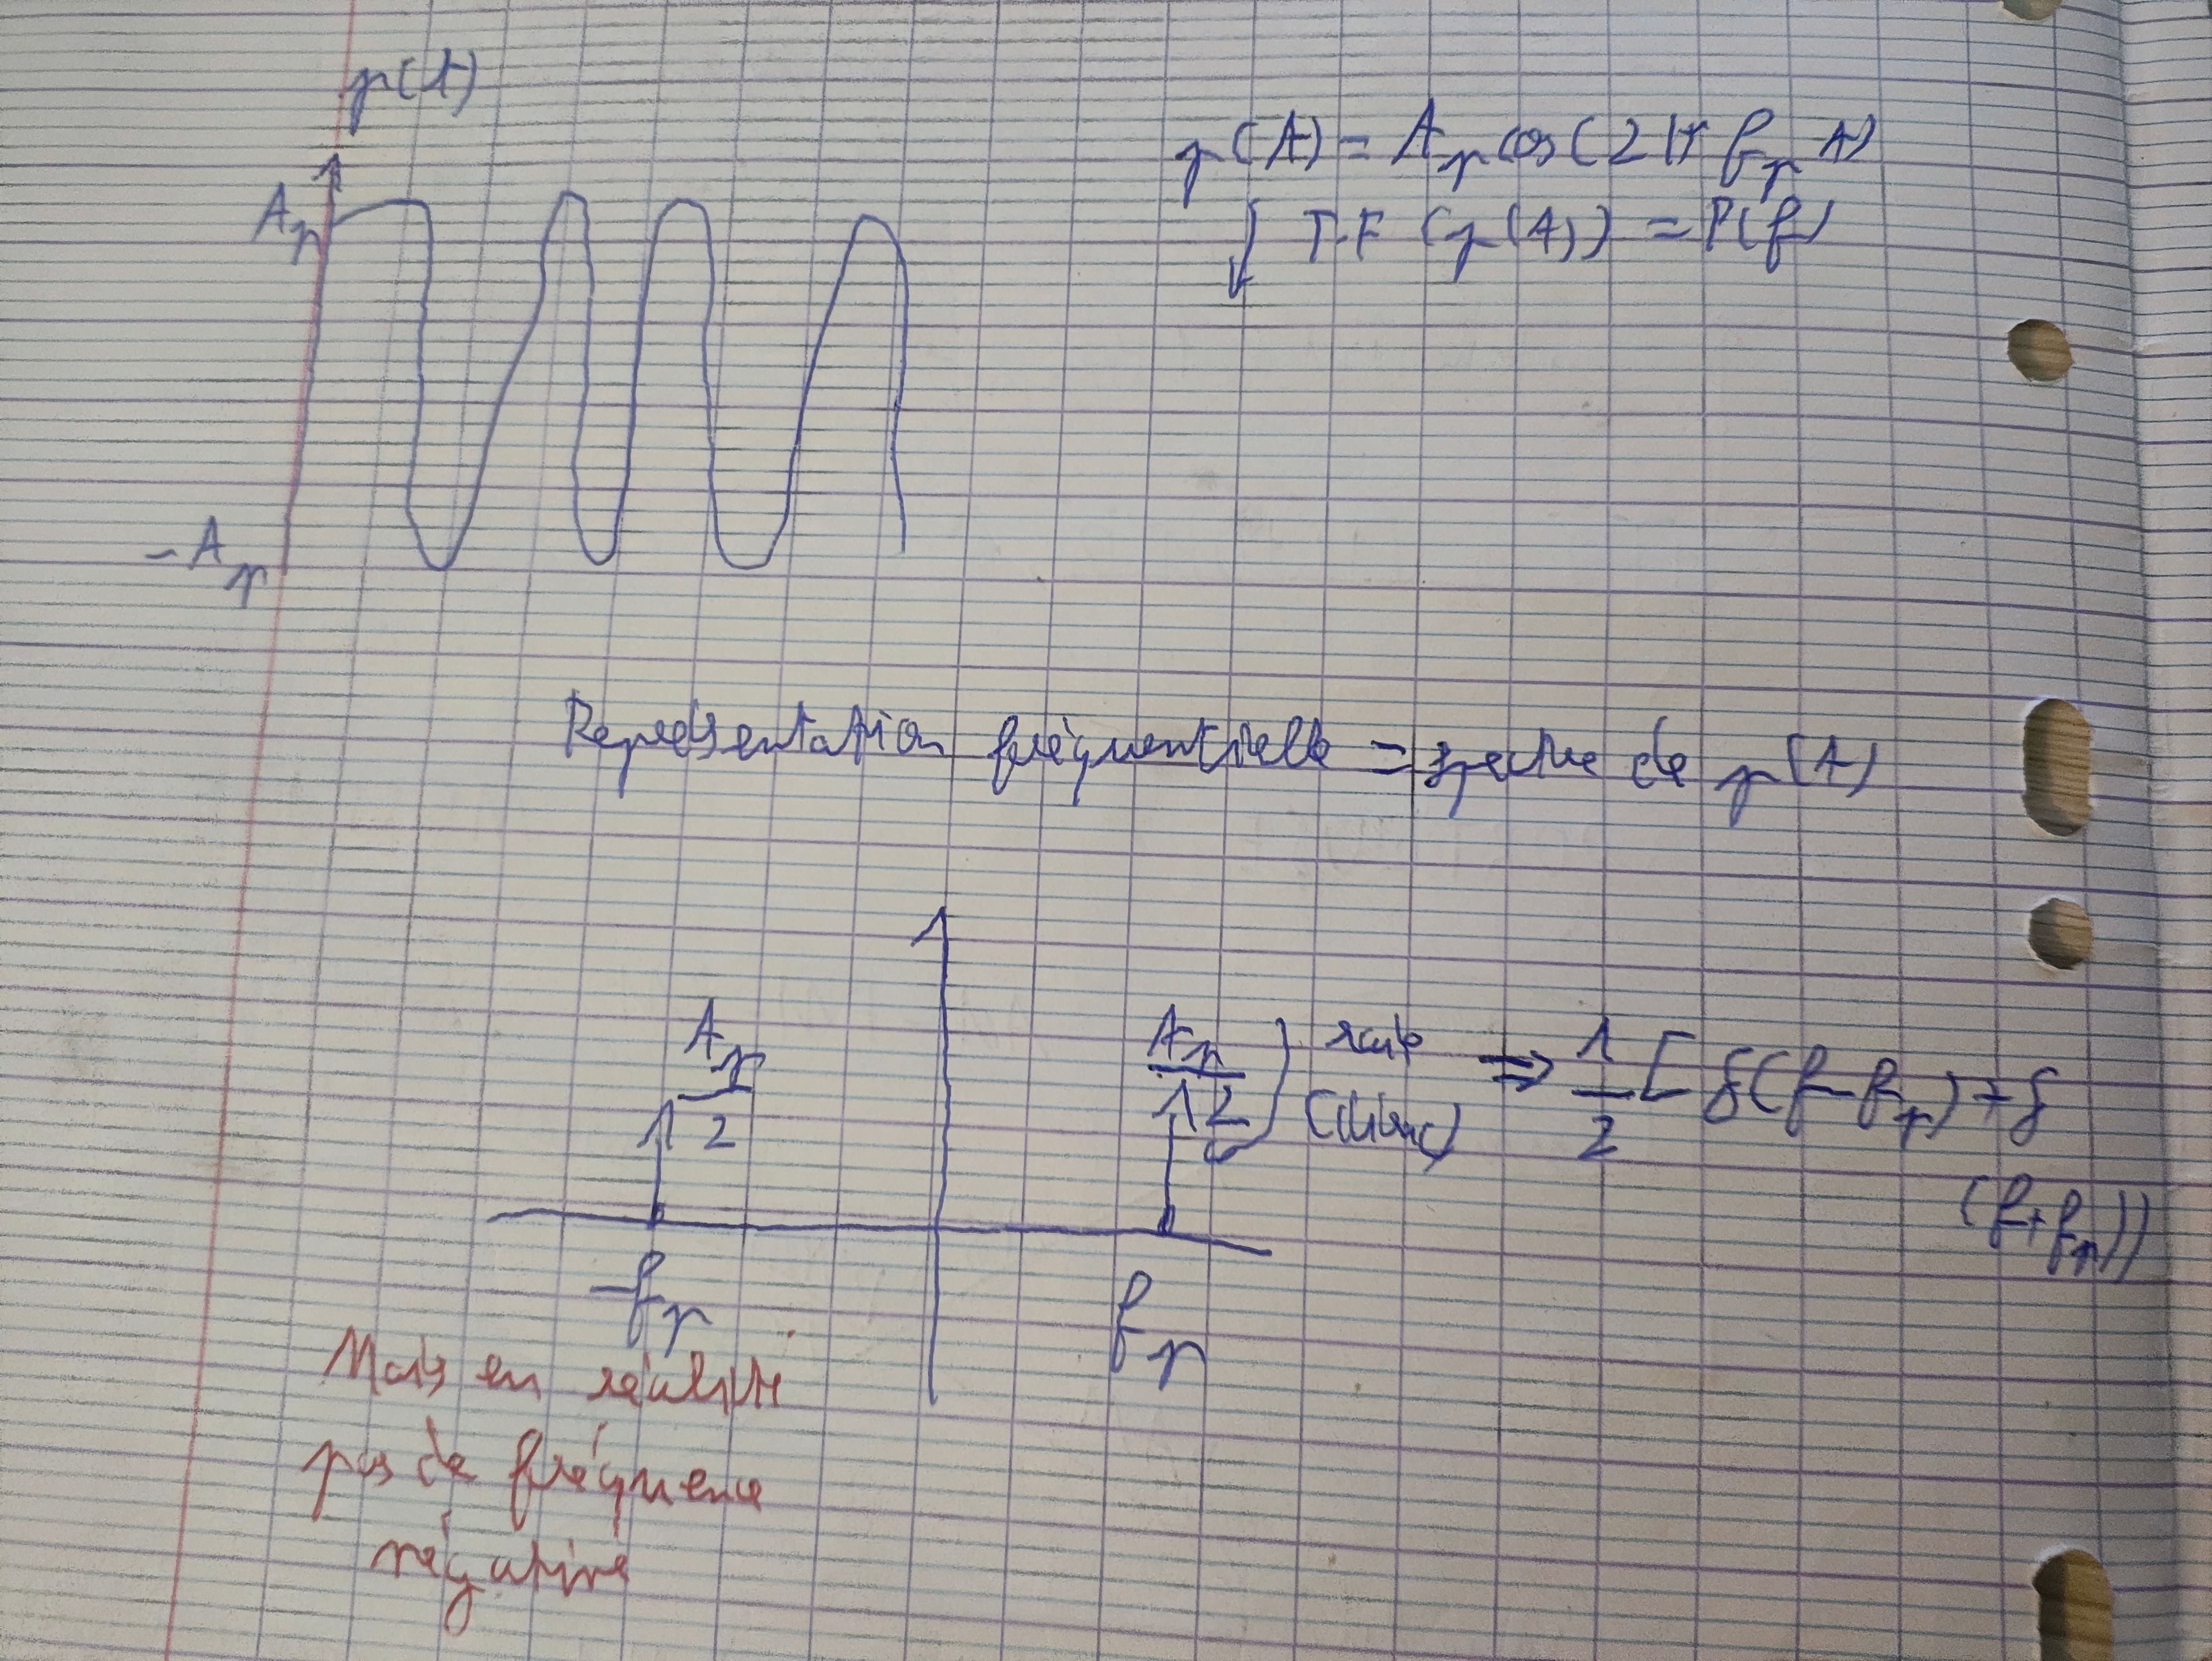 p(t)
A_p
-A_p
p(t) = A_p cos(2π f_p t)
↓ T.F (p(t)) = P(f)
Représentation fréquentielle = spectre de p(t)
A_p/2
A_p/2
(dirac) ⇒ 1/2 [ δ(f-f_p) + δ
(f+f_p))
-f_p
f_p
Mais en réalité
pas de fréquence
négative